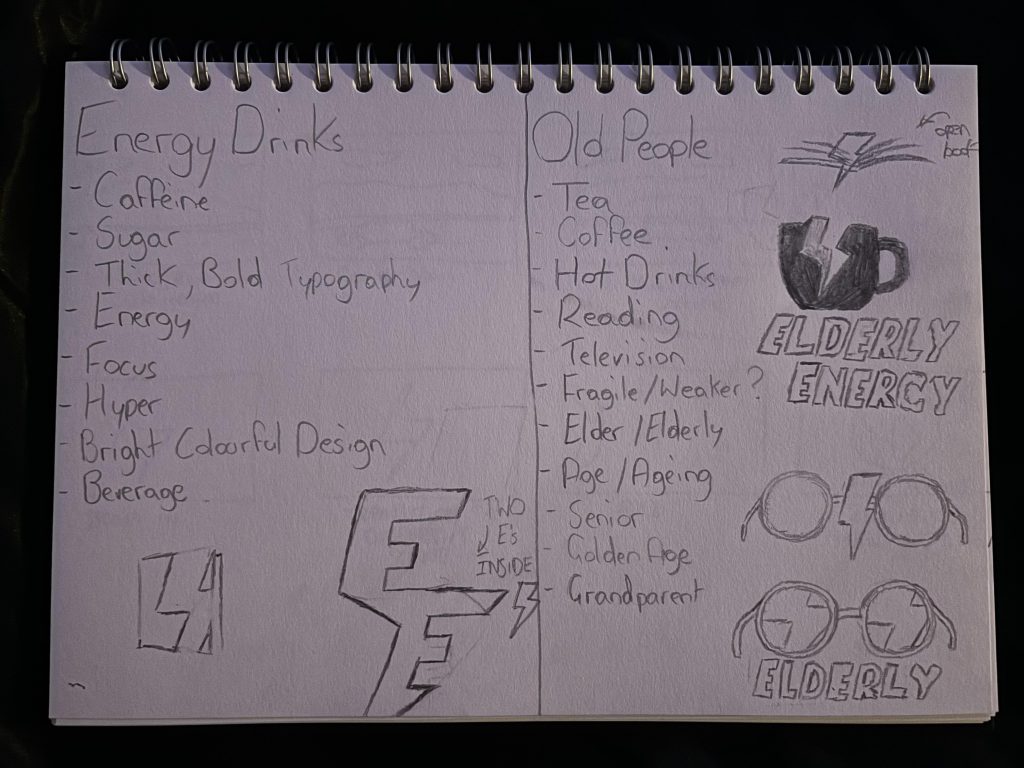 Energy Drinks
- Caffeine
- Sugar
- Thick, Bold Typography
- Energy
- Focus
- Hyper
- Bright Colourful Design
- Beverage
TWO
E's
INSIDE
Old People
- Tea
- Coffee
- Hot Drinks
- Reading
- Television
- Fragile/Weaker?
- Elder/Elderly
- Age/Ageing
- Senior
- Golden Age
- Grandparent
open
book
ELDERLY
ENERGY
ELDERLY